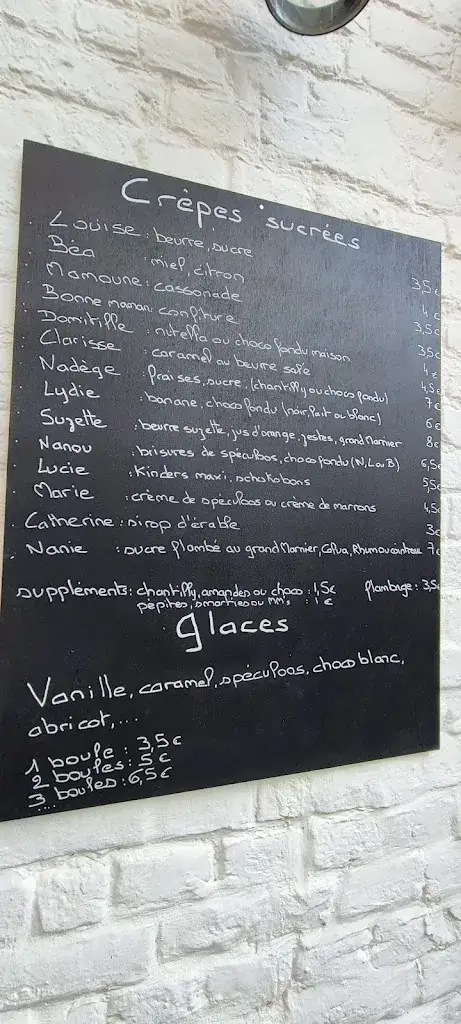 Crêpes sucrées
Louise : beurre, sucre 3,5€
Béa miel, citron 4€
Mamoune : cassonade 3,5€
Bonne maman : confiture 3,5€
Domitille : nutella ou choco fondu maison 4€
Clarisse : caramel au beurre salé 4,5€
Nadège fraises, sucre, (chantilly ou choco fondu) 7€
Lydie banane, choco fondu (noir, lait ou blanc) 6€
Suzette : beurre suzette, jus d'orange, zestes, grand Marnier 8€
Nanou : brisures de spéculoos, choco fondu (N, L ou B) 6,5€
Lucie : Kinders maxi, schokobons 5,5€
Marie : crème de spéculoos ou crème de marrons 4,5€
Catherine : sirop d'érable 3€
Nanie : sucre flambé au grand Marnier, Calva, Rhum ou cointreau 7€
suppléments : chantilly, amandes ou choco : 1,5€ flambage : 3,5€
pépites, smarties ou MM's : 1€
glaces
Vanille, caramel, spéculoos, choco blanc,
abricot, ...
1 boule : 3,5€
2 boules : 5€
3 boules : 6,5€
....